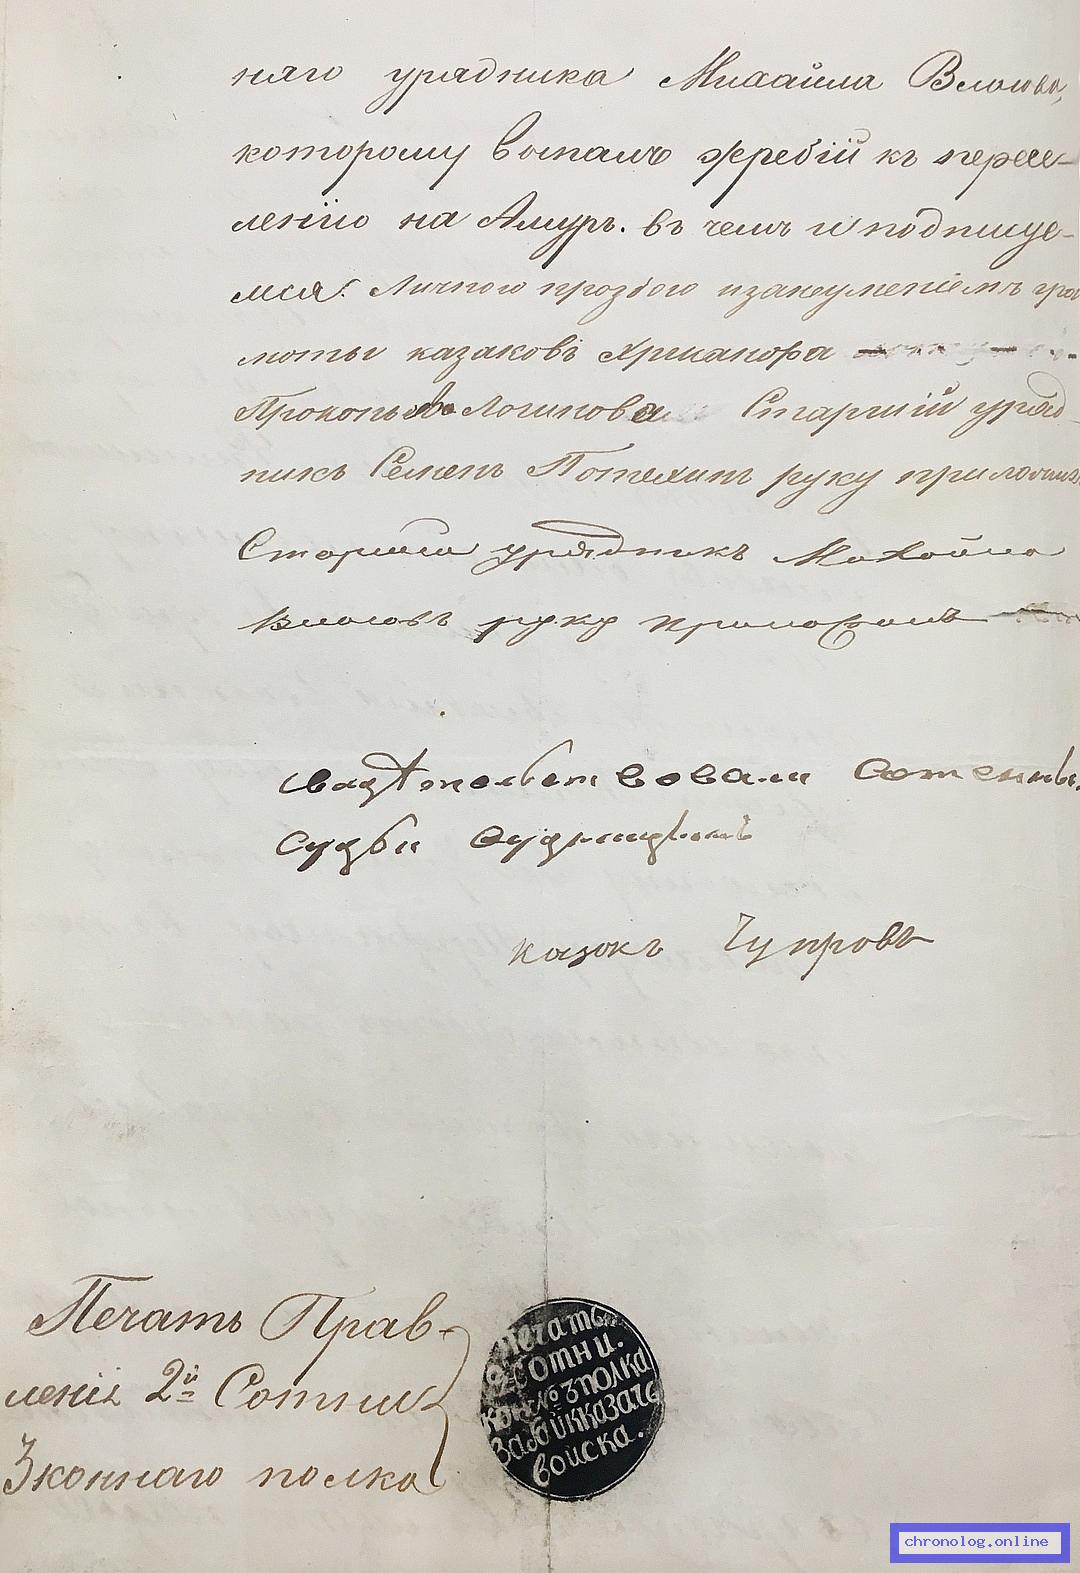 няго урядника Михайла Власова,
которому выпалъ жребій къ пересе-
ленію на Амуръ. въ чемъ и подписуе-
мся. Личною прозбою изанеуменіемъ гра
моты казаковъ
Прокопья Логинова Старшій уряд
никъ Семенъ Потехин руку приложилъ
Старшій урядникъ Михайло
Власовъ руку приложилъ
свидѣтельствовали Сотенные
Судьи
казакъ Чупровъ
Печать Прав-
ленія 2й Сотни
3 коннаго полка
Печать
2 Сотни.
кон №3 полка
Забайк казаче
войска.
chronolog.online